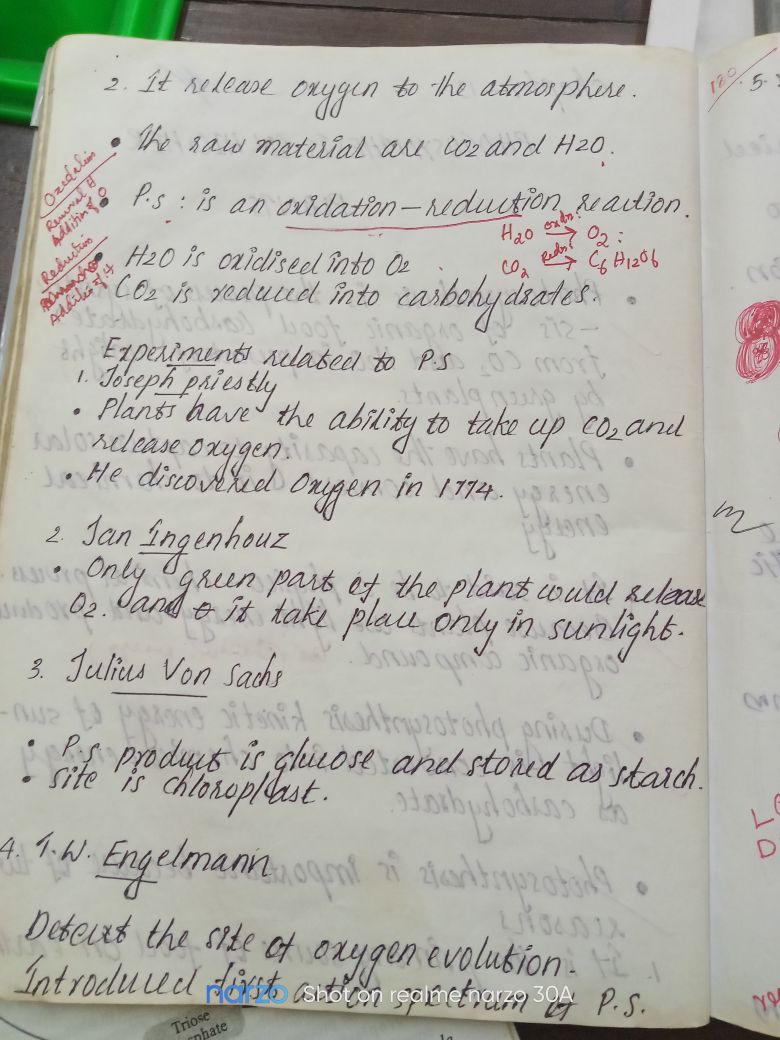 2. It release oxygen to the atmosphere.
• The raw material are CO2 and H2O.
Oxidation
Removal of
Addition of O
• P.s : is an oxidation – reduction reaction.
H2O oxdn. → O2 :
CO2 Redn. → C6H12O6
Reduction
Addition of H
• H2O is oxidised into O2
CO2 is reduced into carbohydrates.
Experiments related to P.S
1. Joseph priestly
• Plants have the ability to take up CO2 and
release oxygen.
• He discovered Oxygen in 1774.
2. Jan Ingenhouz
• Only green part of the plant would release
O2. and it take place only in sunlight.
3. Julius Von Sachs
• P.s product is glucose and stored as starch.
• site is chloroplast.
4. T.W. Engelmann
Detect the site of oxygen evolution.
Introduced first action spectrum of P.S.
narzo Shot on realme narzo 30A
Triose
phate
180
5.